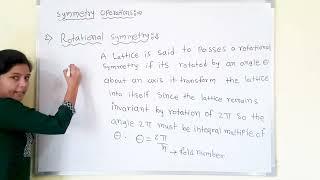 Symmetry Operations:-
2) Rotational Symmetry:-
A Lattice is said to Posses a rotational
Symmetry if its rotated by an angle θ
about an axis it transform the lattice
into itself Since the lattice remains
invariant by rotation of 2π so the
angle 2π must be integral multiple of
θ. θ = 2π/n
→ fold number